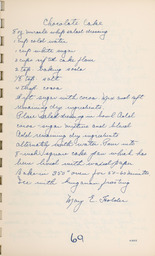 Chocolate Cake
8 oz. miracle whip salad dressing
1 cup cold water
1 cup white sugar
2 cups sifted cake flour
2 tsp. baking soda
1/8 tsp. salt
4 tbsp. cocoa
Sift sugar with cocoa
remaining dry ingredients
Place salad dressing in bowl. Add
cocoa-sugar mixture and blend
Add remaining dry ingredients
alternately with water. Pour into
cake pan which has
been lined with waxed paper.
Bake in 350° oven for 50-60 minutes
Ice with frosting
Mary E.
69